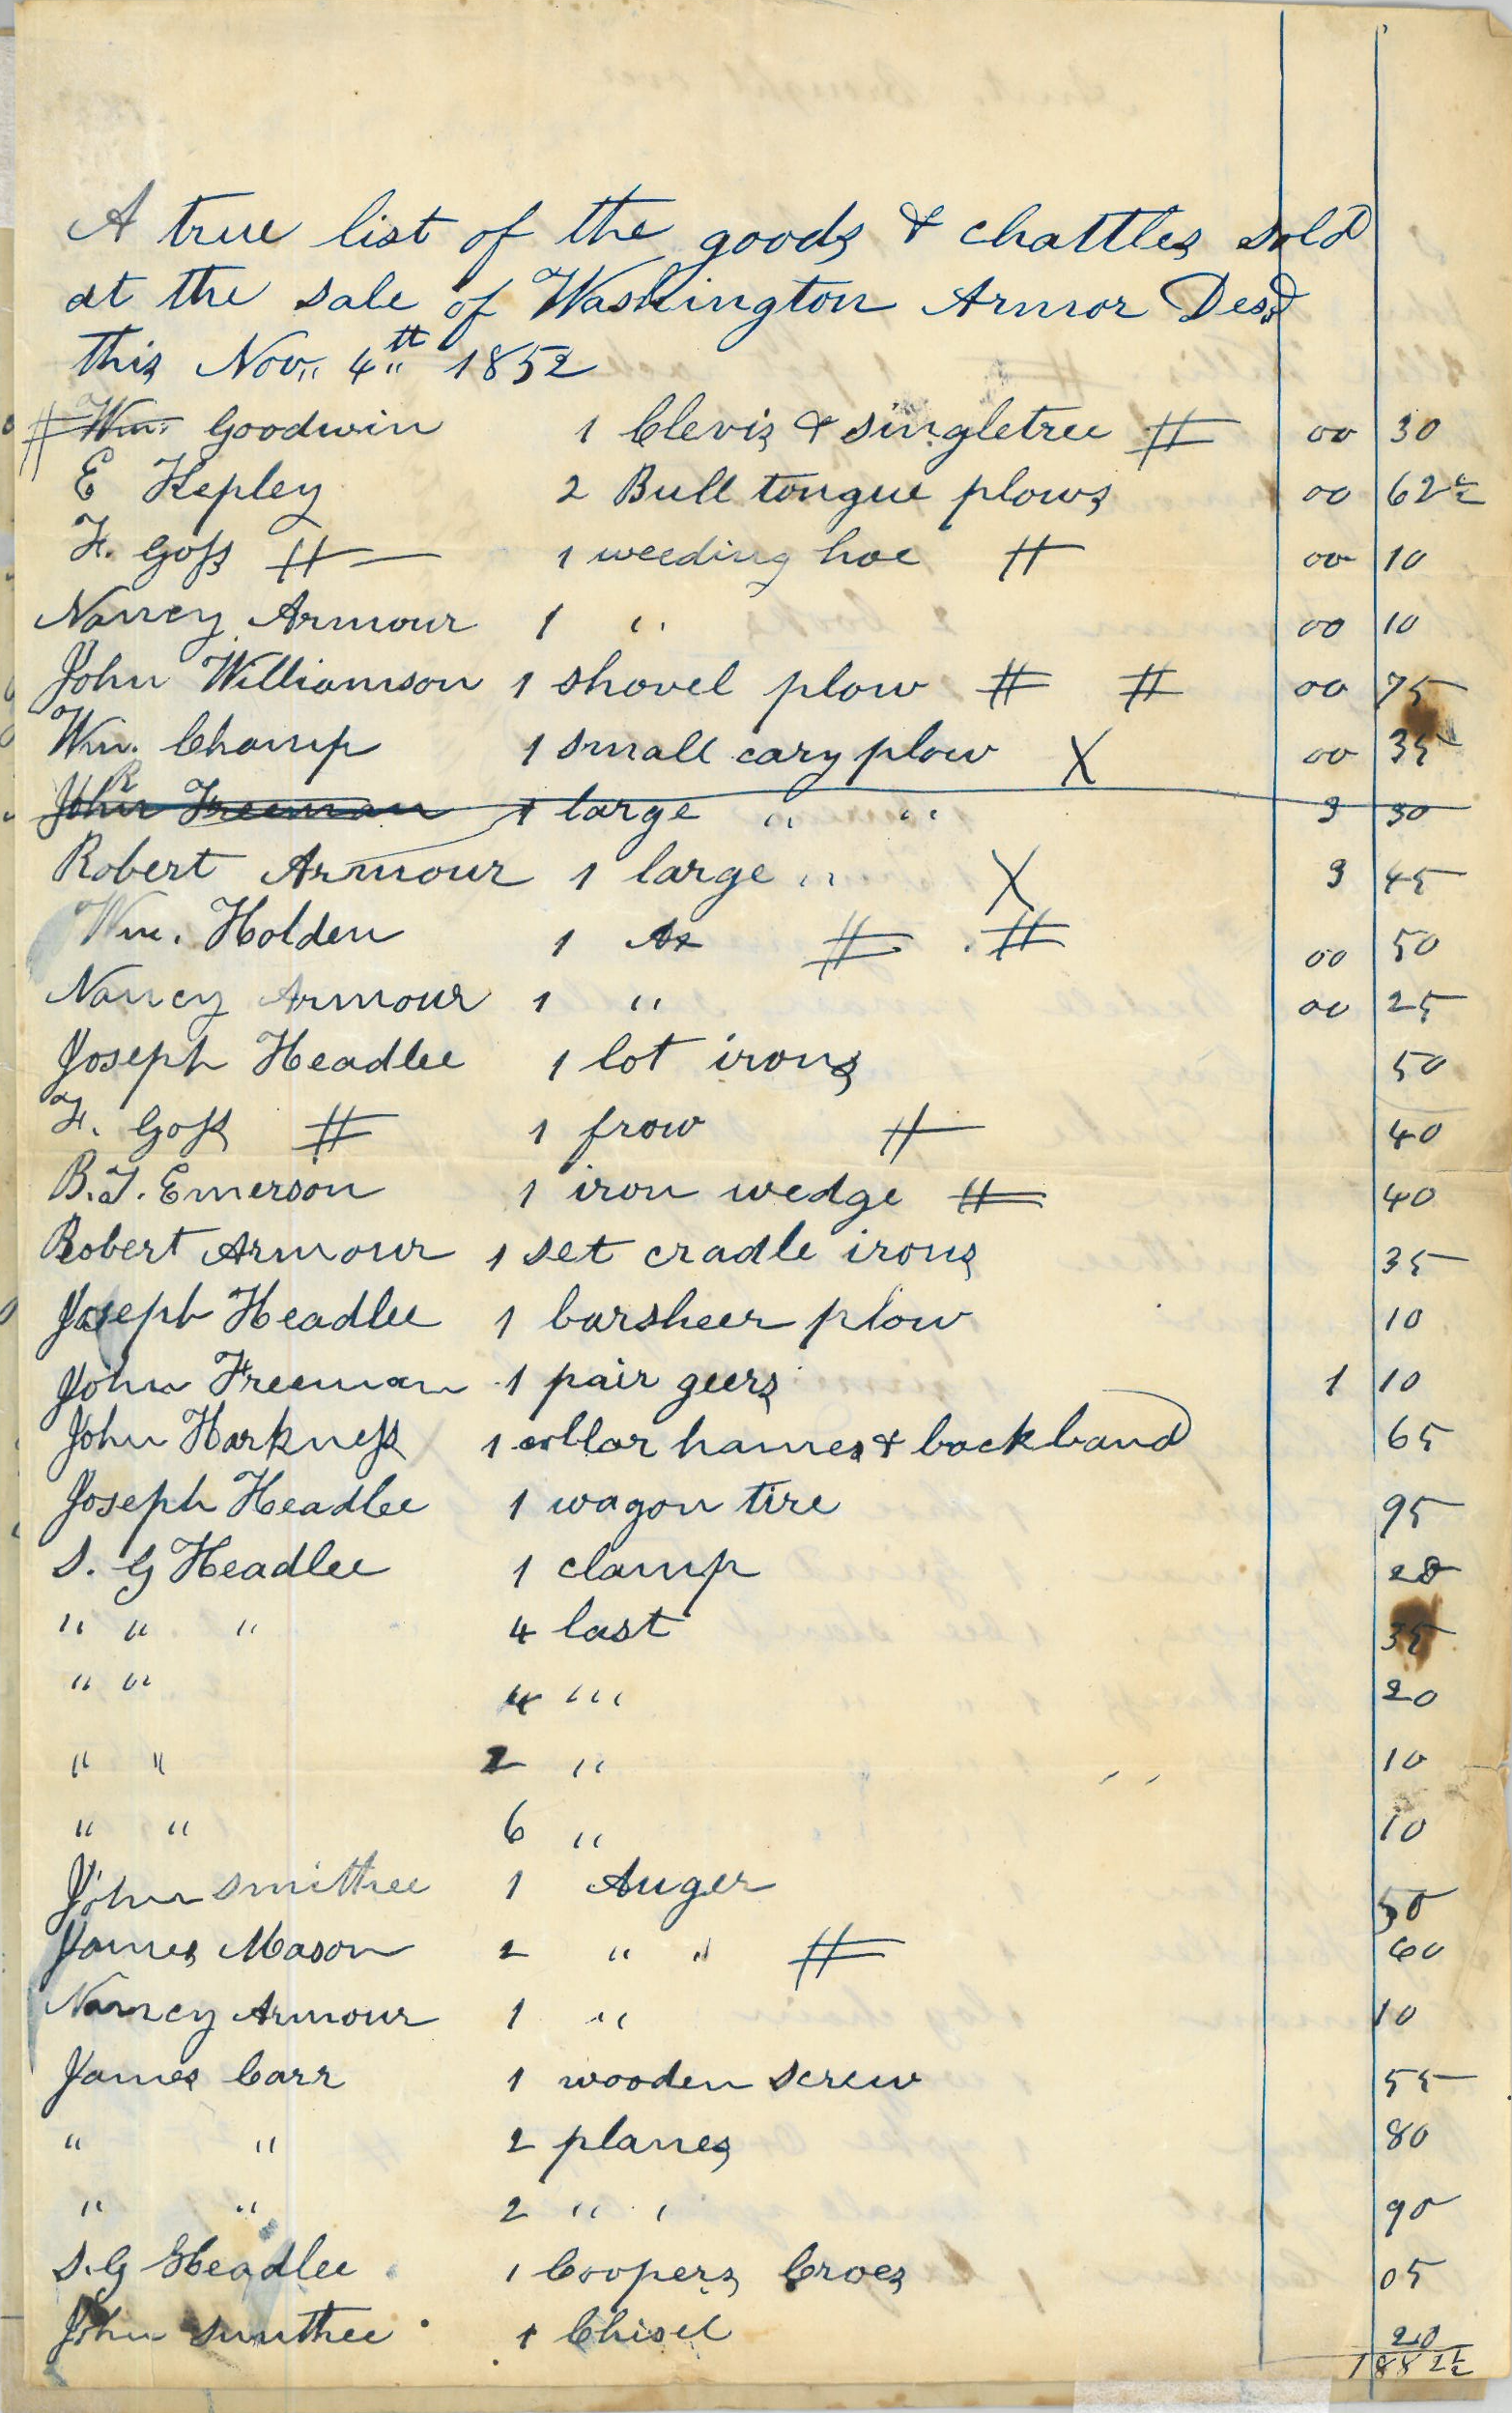 A true list of the goods & chattles sold
at the sale of Washington Armor Desd
this Nov,, 4th 1852
# Wm. Goodwin 1 Clevis & singletree # 00 30
E Kepley 2 Bull tongue plows 00 62 1/2
F. Goss # 1 weeding hoe # 00 10
Nancy Armour 1 " 00 10
John Williamson 1 shovel plow # # 00 75
Wm. Champ 1 small cary plow X 00 35
John Freeman 1 large " " 3 30
Robert Armour 1 large " X 3 45
Wm. Holden 1 Ax # # 00 50
Nancy Armour 1 " 00 25
Joseph Headlee 1 lot irons 50
F. Goss # 1 frow # 40
B.F. Emerson 1 iron wedge # 40
Robert Armour 1 set cradle irons 35
Joseph Headlee 1 barsheer plow 10
John Freeman 1 pair geers 1 10
John Harkness 1 collar hames & backband 65
Joseph Headlee 1 wagon tire 95
S. G Headlee 1 clamp 20
" " " 4 last 35
" " 4 " 20
" " 2 " 10
" " 6 " 10
John Smitthee 1 Auger 50
James Mason 2 " " # 60
Nancy Armour 1 " 10
James Carr 1 wooden screw 55
" " 2 planes 80
" " 2 " " 90
S. G Headlee 1 Coopers Croes 05
John Smithee 1 Chisel 20
188 2 1/2